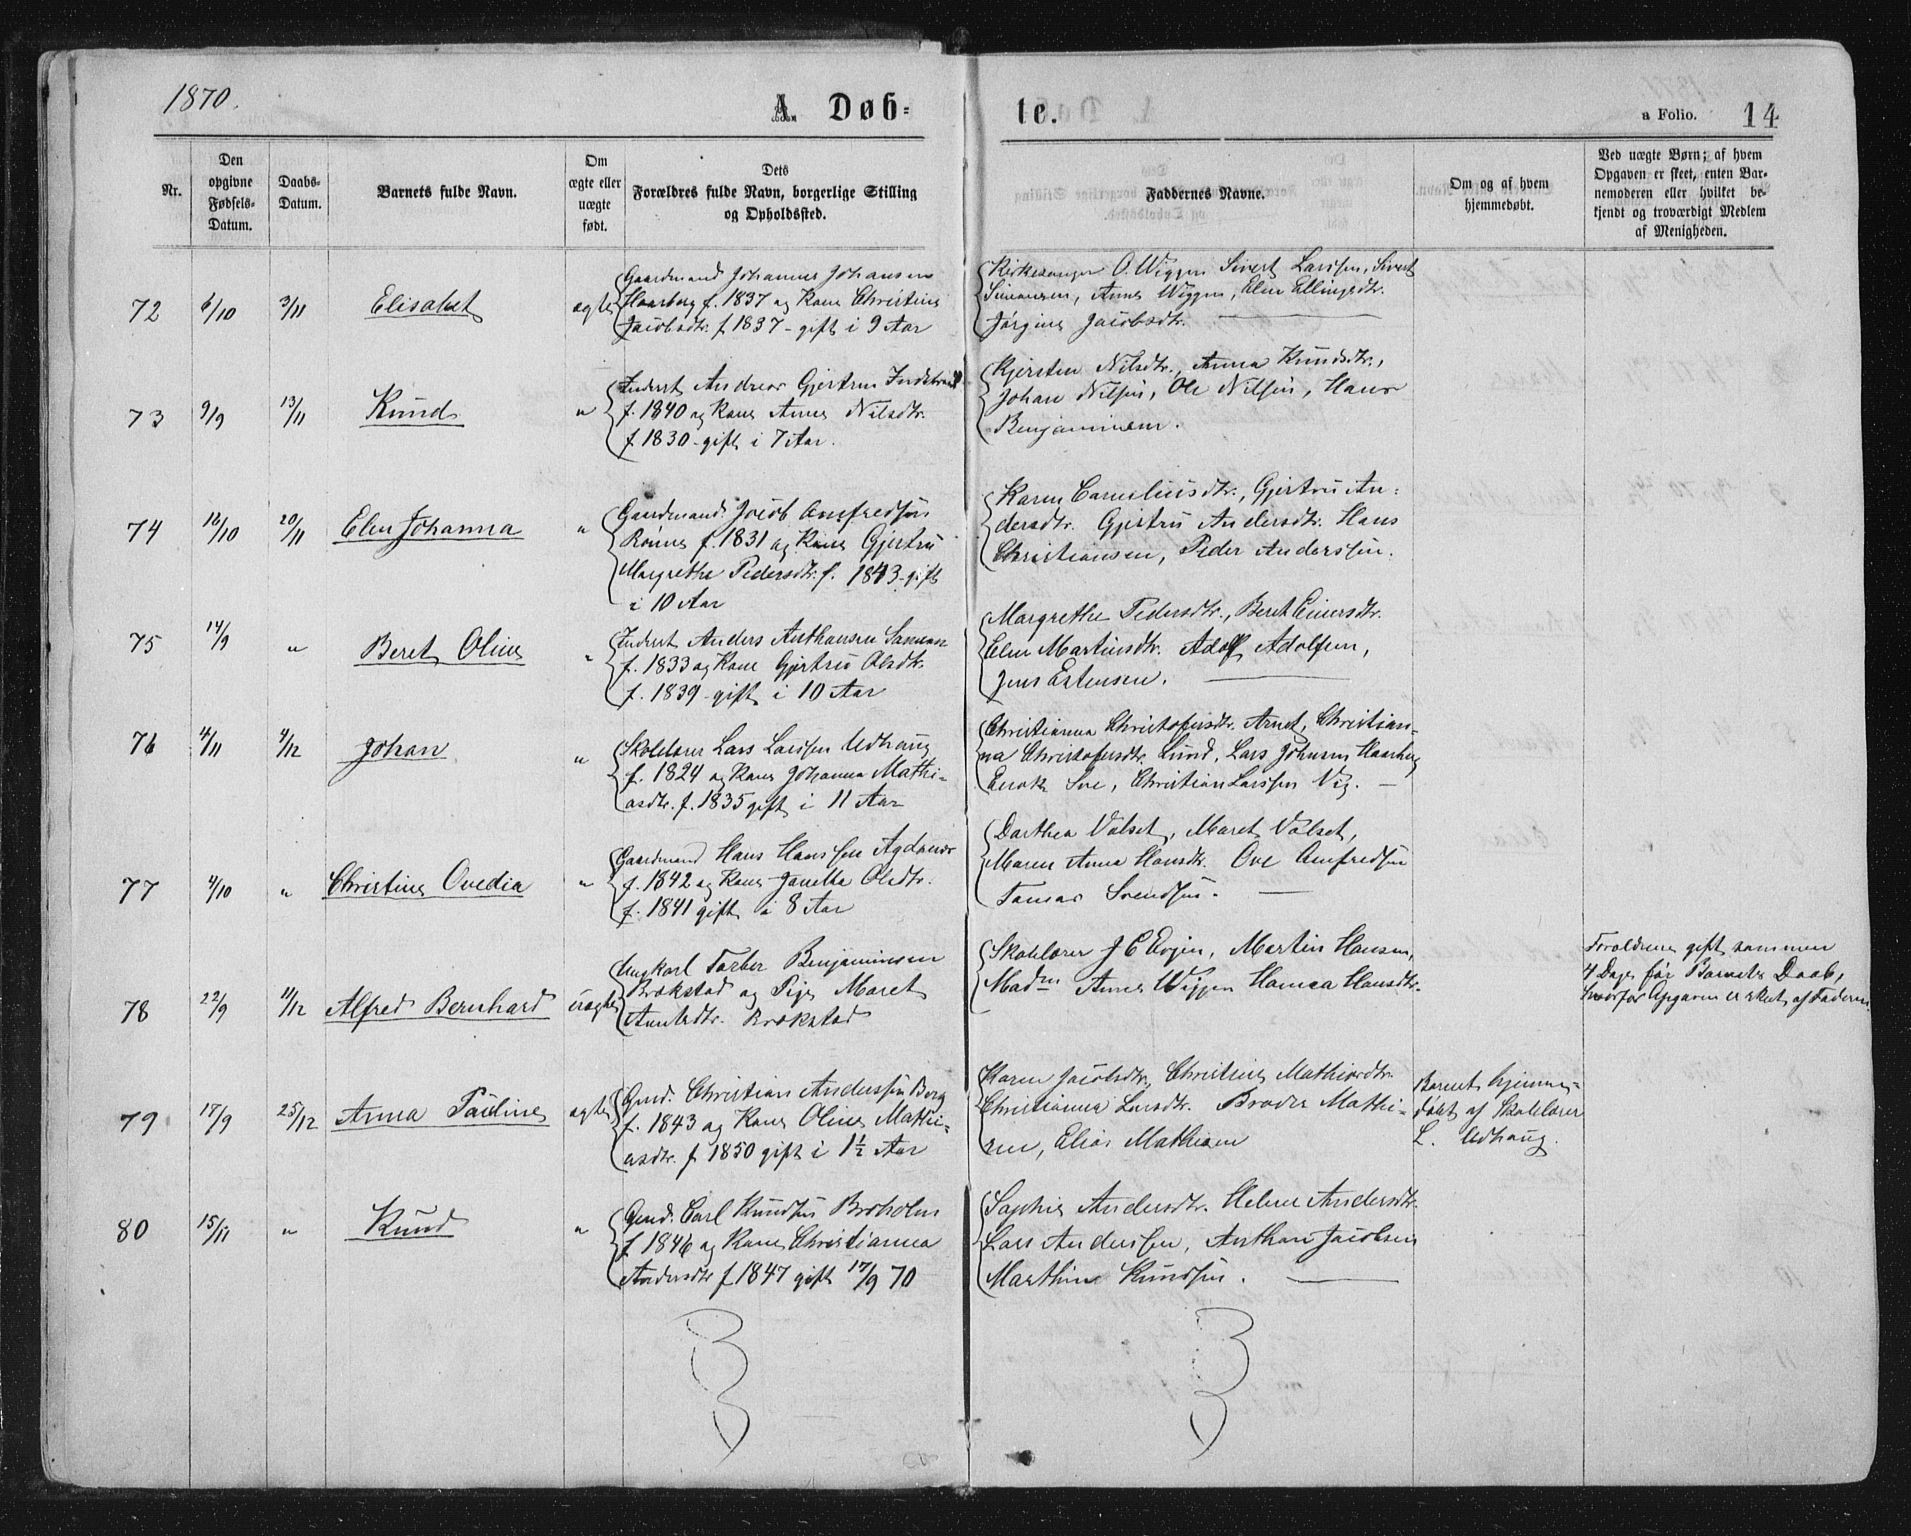 1870.
A. Døb-
te.
a Folio. 14
Nr.
Den opgivne Fødsels-Datum.
Daabs-Datum.
Barnets fulde Navn.
Om ægte eller uægte født.
Dets Forældres fulde Navn, borgerlige Stilling og Opholdssted.
Faddernes Navne.
Om og af hvem hjemmedøbt.
Ved uægte Børn; af hvem Opgaven er skeet, enten Bar-nemoderen eller hvilket be-kjendt og troværdigt Medlem af Menigheden.
72 6/10 3/11 Elisabet ægte
Gaardmand Johannes Johansen
Haarberg f. 1837 og Kone Christine
Jacobsdtr. f. 1837 - gift i 9 Aar
Kirkesanger O. Wiggen Sivert Larssen, Sivert
Simonsen, Anne Wiggen, Elen Ellingsdtr.
Jørgine Jacobsdtr.
73 9/9 13/11 Knud "
Inderst Andreas Gjertsen
f. 1840 og Kone Anne Nilsdtr.
f. 1830 - gift i 7 Aar.
Kjersten Nilsdtr., Anna Knudsdtr.,
Johan Nilsen, Ole Nilsen, Hans
Benjaminsen.
74 16/10 20/11 Elen Johanna "
Gaardmand Jacob Amfredsen
Rønne f. 1831 og Kone Gjertru
Margrethe Pedersdtr. f. 1843 - gift
i 10 Aar
Karen Corneliusdtr., Gjertru An-
dersdtr. Gjertru Andersdtr. Hans
Christiansen, Peder Anderssen.
75 14/9 " Beret Oline "
Inderst Anders Anthonsen
f. 1833 og Kone Gjertru Olsdtr.
f. 1839 - gift i 10 Aar
Margrethe Pedersdtr., Beret Einersdtr.
Elen Martinsdtr. Adolf Adolfsen,
Jens Estensen.
76 4/11 4/12 Johan "
Skolelærer Lars Larssen Udhaug
f. 1824 og Kone Johanna Mathi-
asdtr. f. 1835 gift i 11 Aar
Christianna Christofersdtr. Arnet, Christian-
na Christofersdtr. Lund, Lars Johnsen Haarberg
Enok Sve, Christian Larssen Vig.
77 4/10 " Christine Ovedia "
Gaardmand Hans Hanssen Agdanæs
f. 1842 og Kone Janetta Olsdtr.
f. 1841 gift i 8 Aar
Dorthea Valset, Maret Valset,
Maren Anna Hansdtr. Ove Amfredsen
Tomas Svendsen.
78 22/9 11/12 Alfred Bernhard uægte
Ungkarl Torber Benjaminsen
Brækstad og Pige Maret
Arntsdtr. Brækstad
Skolelærer J C Evjen, Martin Hansen,
Madm Anne Wiggen Hansdtr.
Forældrene gift sammen
4 Dage før Barnets Daab,
hvorfor Opgaven er skeet af Faderen.
79 17/9 25/12 Anna Pauline ægte
Gmd. Christian Anderssen Berg
f. 1843 og Kone Oline Mathi-
asdtr. f 1850 gift i 1½ Aar
Karen Jacobsdtr., Christine Mathiasdtr.
Christianna Larsdtr. Broder Mathi-
sen, Elias Mathisen
Barnet hjemme-
døbt af Skolelærer
L. Udhaug.
80 15/11 " Knud "
Gmd. Carl Knudsen Broholm
f. 1846 og Kone Christianna
Andersdtr f 1847 gift 17/9 70
Sophie Andersdtr. Helene Andersdtr.
Lars Anderssen, Anthon Jacobsen
Marthin Knudsen.